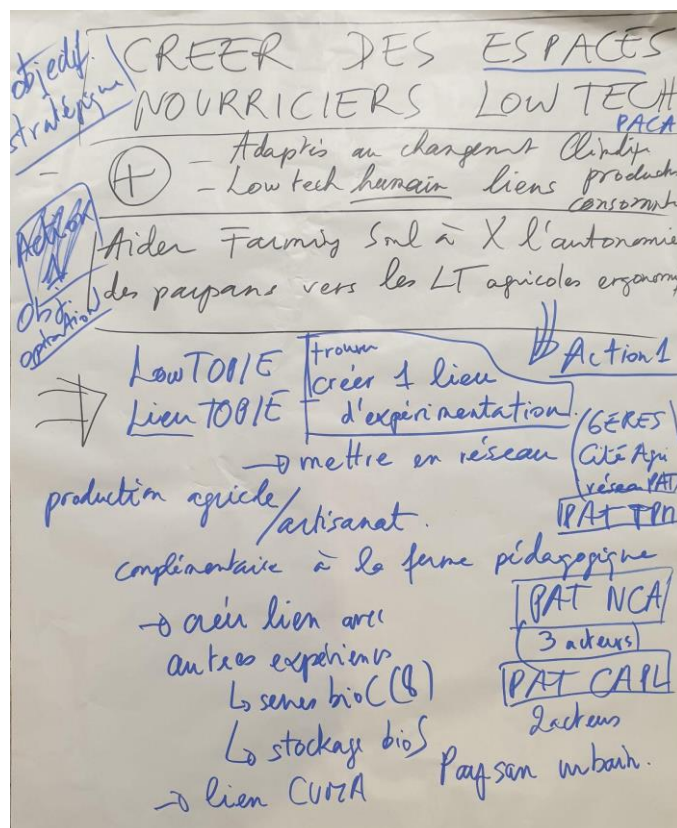 objectif
stratégique
CREER DES ESPACES
NOURRICIERS LOW TECH
PACA
+
- Adaptés au changemnt Climatiq
- Low tech humain liens product
consommt
Action
1
Obj.
opération
Aider Farming Soul à X l'autonomie
des paysans vers les LT agricoles ergonom
Action 1
LowTOPIE
LieuTOPIE
trouver
créer 1 lieu
d'expérimentation
→ mettre en réseau
GERES
Cité Agri
réseau PAT
PAT TPM
production agricole
/artisanat.
complémentaire à la ferme pédagogique
→ créer lien avec
autres expériences
↳ serres bioC (8)
↳ stockage bioS
→ lien CUMA
PAT NCA
(3 acteurs)
PAT CAPL
2 acteurs
Paysan urbain.